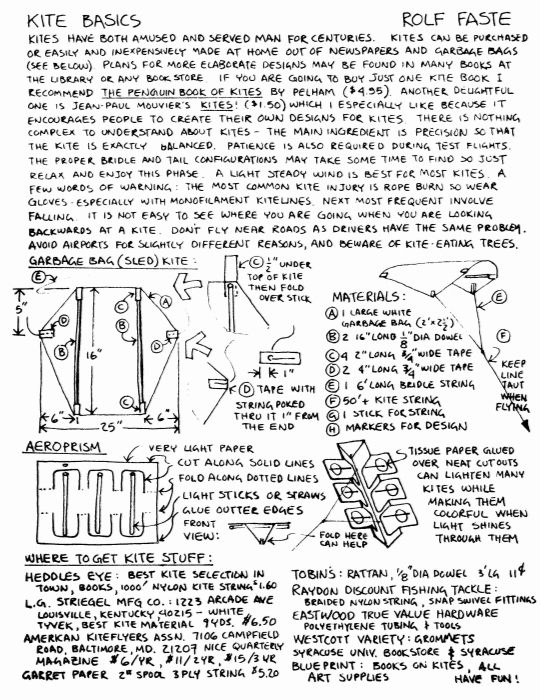 KITE BASICS
ROLF FASTE
KITES HAVE BOTH AMUSED AND SERVED MAN FOR CENTURIES. KITES CAN BE PURCHASED
OR EASILY AND INEXPENSIVELY MADE AT HOME OUT OF NEWSPAPERS AND GARBAGE BAGS
(SEE BELOW). PLANS FOR MORE ELABORATE DESIGNS MAY BE FOUND IN MANY BOOKS AT
THE LIBRARY OR ANY BOOK STORE. IF YOU ARE GOING TO BUY JUST ONE KITE BOOK I
RECOMMEND THE PENGUIN BOOK OF KITES BY PELHAM ($4.95). ANOTHER DELIGHTFUL
ONE IS JEAN-PAUL MOUVIER'S KITES! ($1.50) WHICH I ESPECIALLY LIKE BECAUSE IT
ENCOURAGES PEOPLE TO CREATE THEIR OWN DESIGNS FOR KITES. THERE IS NOTHING
COMPLEX TO UNDERSTAND ABOUT KITES - THE MAIN INGREDIENT IS PRECISION SO THAT
THE KITE IS EXACTLY BALANCED. PATIENCE IS ALSO REQUIRED DURING TEST FLIGHTS.
THE PROPER BRIDLE AND TAIL CONFIGURATIONS MAY TAKE SOME TIME TO FIND SO JUST
RELAX AND ENJOY THIS PHASE. A LIGHT STEADY WIND IS BEST FOR MOST KITES. A
FEW WORDS OF WARNING: THE MOST COMMON KITE INJURY IS ROPE BURN SO WEAR
GLOVES - ESPECIALLY WITH MONOFILAMENT KITELINES. NEXT MOST FREQUENT INVOLVE
FALLING. IT IS NOT EASY TO SEE WHERE YOU ARE GOING WHEN YOU ARE LOOKING
BACKWARDS AT A KITE. DON'T FLY NEAR ROADS AS DRIVERS HAVE THE SAME PROBLEM.
AVOID AIRPORTS FOR SLIGHTLY DIFFERENT REASONS, AND BEWARE OF KITE-EATING TREES.
GARBAGE BAG (SLED) KITE:
E
C
A
B
B
D
D
C
5"
16"
6"
6"
25"
C 1/2" UNDER
TOP OF KITE
THEN FOLD
OVER STICK
1"
D TAPE WITH
STRING POKED
THRU IT 1" FROM
THE END
MATERIALS:
A 1 LARGE WHITE
GARBAGE BAG (2'x2½')
B 2 16" LONG 1/8" DIA DOWEL
C 4 2" LONG 3/4" WIDE TAPE
D 2 4" LONG 3/4" WIDE TAPE
E 1 6' LONG BRIDLE STRING
F 50'+ KITE STRING
G 1 STICK FOR STRING
H MARKERS FOR DESIGN
E
F
KEEP
LINE
TAUT
WHEN
FLYING
AEROPRISM
VERY LIGHT PAPER
CUT ALONG SOLID LINES
FOLD ALONG DOTTED LINES
LIGHT STICKS OR STRAWS
GLUE OUTTER EDGES
FRONT
VIEW:
FOLD HERE
CAN HELP
TISSUE PAPER GLUED
OVER NEAT CUTOUTS
CAN LIGHTEN MANY
KITES WHILE
MAKING THEM
COLORFUL WHEN
LIGHT SHINES
THROUGH THEM
WHERE TO GET KITE STUFF:
HEDDLES EYE: BEST KITE SELECTION IN
TOWN, BOOKS, 1000' NYLON KITE STRING $1.60
L.G. STRIEGEL MFG CO.: 1223 ARCADE AVE
LOUISVILLE, KENTUCKY 40215 - WHITE
TYVEK, BEST KITE MATERIAL 9YDS. $6.50
AMERICAN KITEFLYERS ASSN. 7106 CAMPFIELD
ROAD, BALTIMORE, MD. 21207 NICE QUARTERLY
MAGAZINE $6/YR, $11/2YR, $15/3YR
GARRET PAPER 2# SPOOL 3PLY STRING $5.20
TOBIN'S: RATTAN, 1/8" DIA DOWEL 3' LG 11¢
RAYDON DISCOUNT FISHING TACKLE:
BRAIDED NYLON STRING, SNAP SWIVEL FITTINGS
EASTWOOD TRUE VALUE HARDWARE
POLYETHYLENE TUBING & TOOLS
WESTCOTT VARIETY: GROMMETS
SYRACUSE UNIV. BOOKSTORE & SYRACUSE
BLUEPRINT: BOOKS ON KITES, ALL
ART SUPPLIES
HAVE FUN!